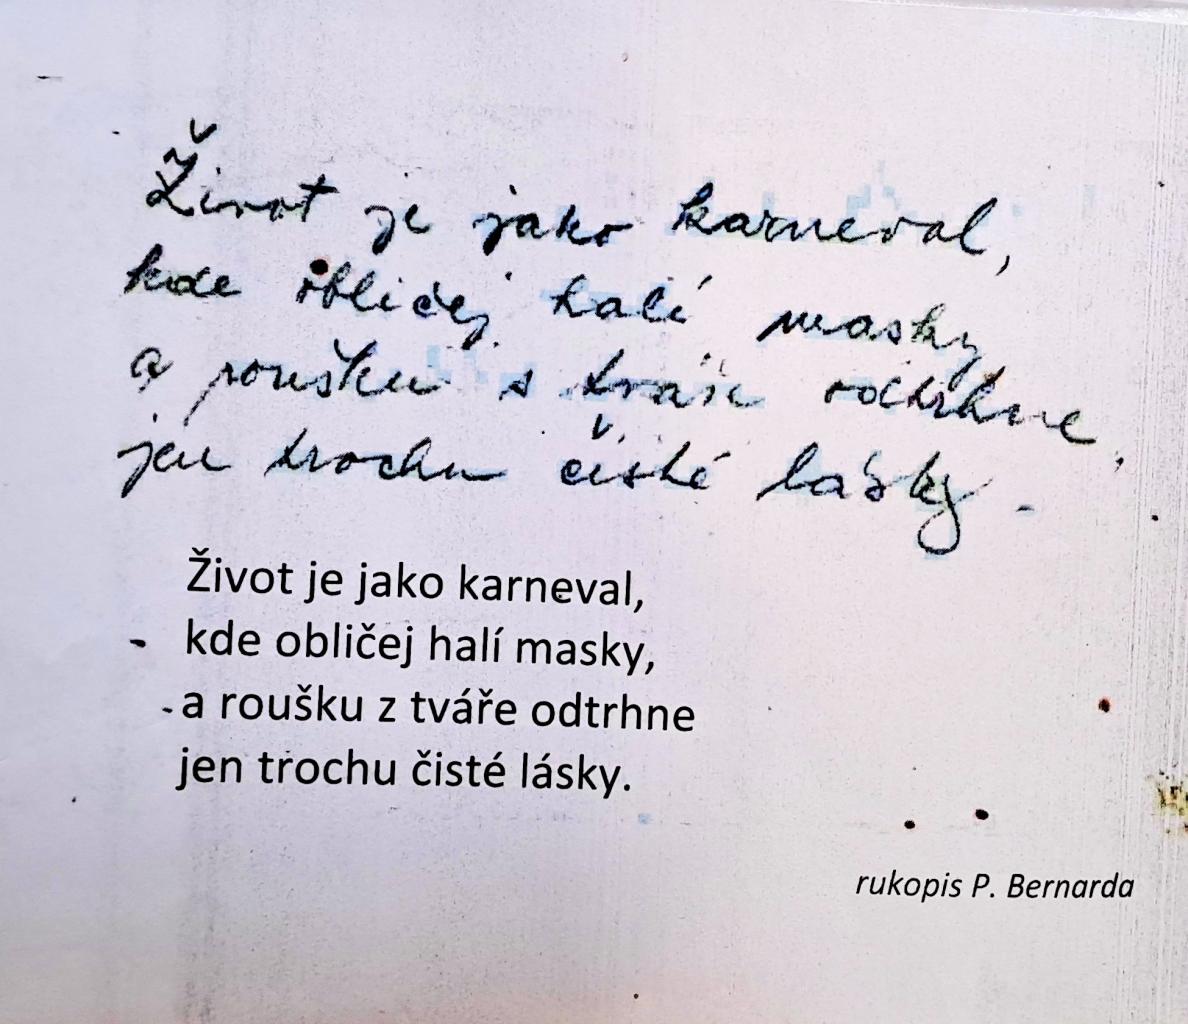 Život je jako karneval,
kde obličej halí masky
a roušku s tváře odtrhne,
jen trochu čisté lásky.
Život je jako karneval,
kde obličej halí masky,
a roušku z tváře odtrhne
jen trochu čisté lásky.
rukopis P. Bernarda